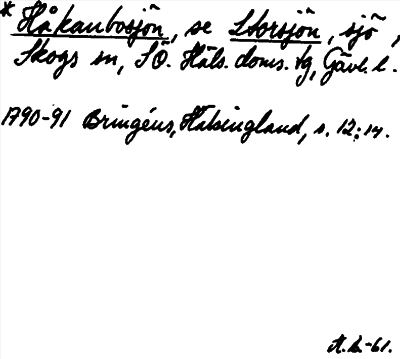 * Håkanbosjön, se Storsjön, sjö,
Skogs sn, SÖ. Häls. doms. tg, Gävl. l.
1790-91 Bringéus, Hälsingland, s. 12:14.
A.L.-61.